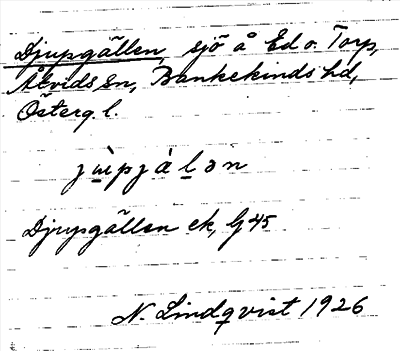 Djupgällen, sjö å Ed o. Torp,
Åtvids sn, Bankekinds hd,
Österg. l.
jùpjàlən
Djupgällen ek, G 45
N. Lindqvist 1926